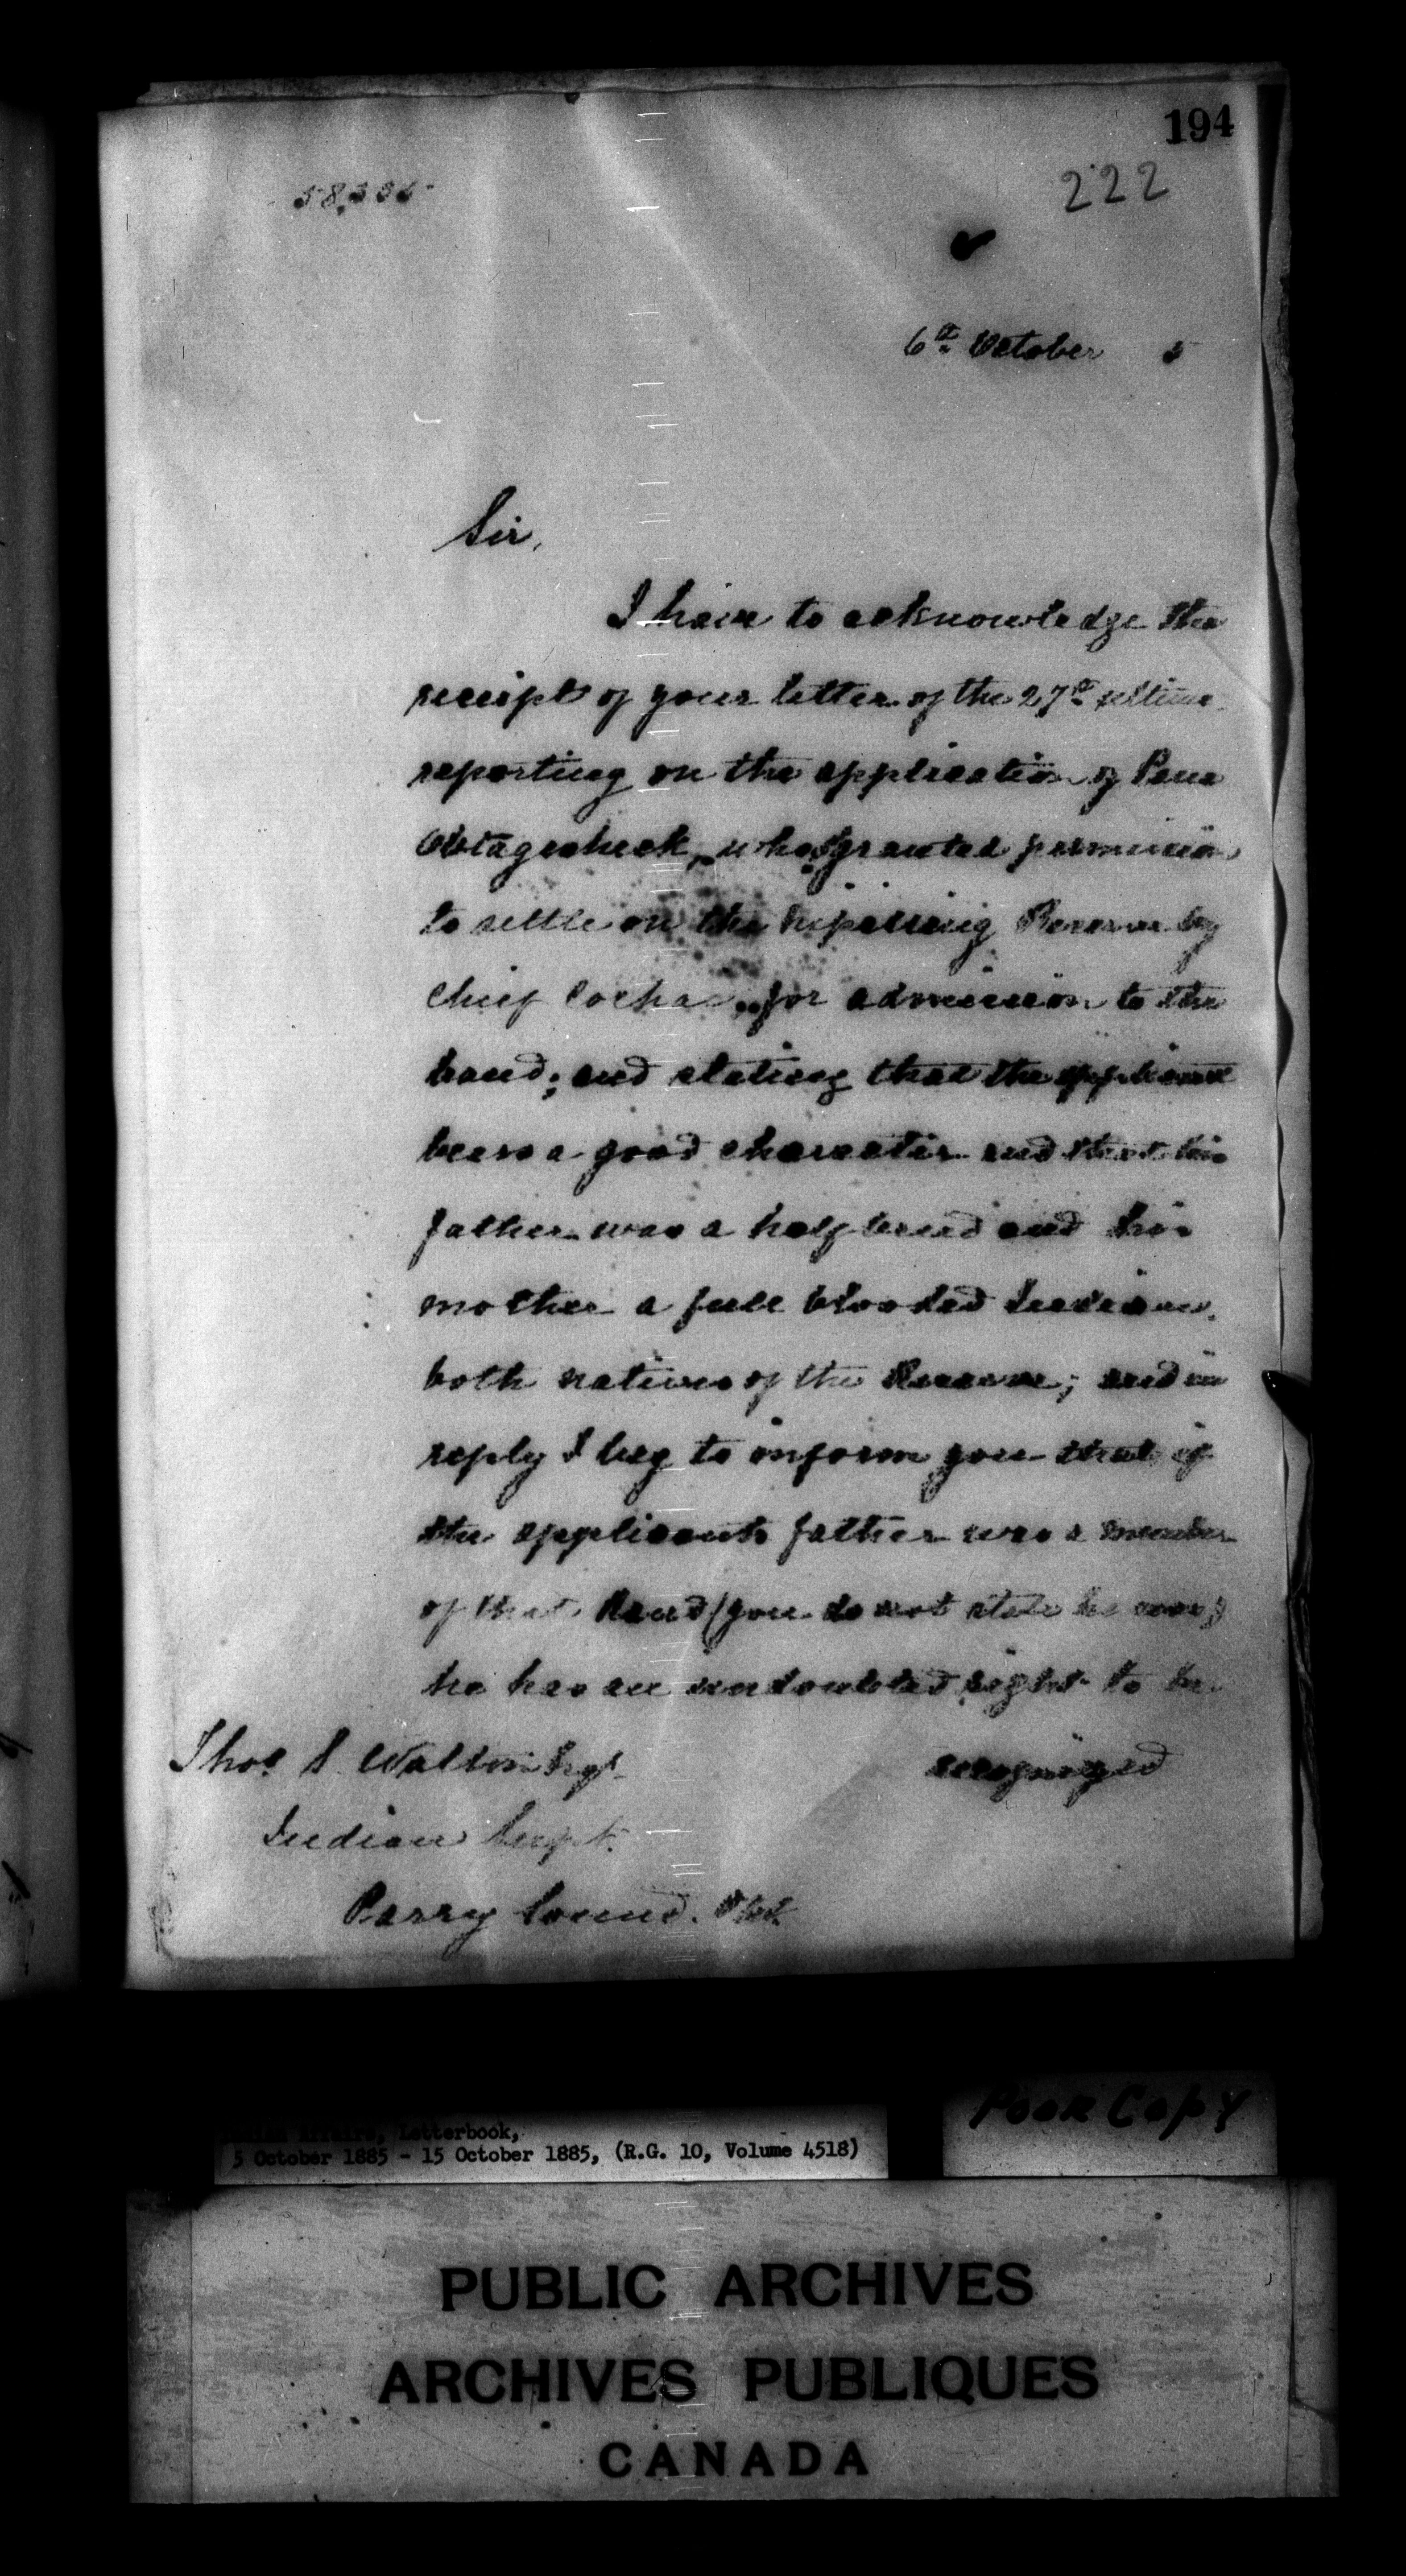 194
222
6th October 5
Sir,
I have to acknowledge the
receipt of your letter of the 27th ultimo
reporting on the application of
who granted permission
to settle on the Nipissing Reserve by
Chief for admission to the
band; and stating that the applicant
bears a good character and that his
father was a half breed and his
mother a full blooded Indian,
both natives of the Reserve; and in
reply I beg to inform you that if
the applicants father was a member
of that Band (you do not state he was)
he has an undoubted right to be
recognized
Thos. S. Walton Esqr.
Indian Supt.
Parry Sound. Ont.
Poor Copy
Affairs, Letterbook,
5 October 1885 - 15 October 1885, (R.G. 10, Volume 4518)
PUBLIC ARCHIVES
ARCHIVES PUBLIQUES
CANADA